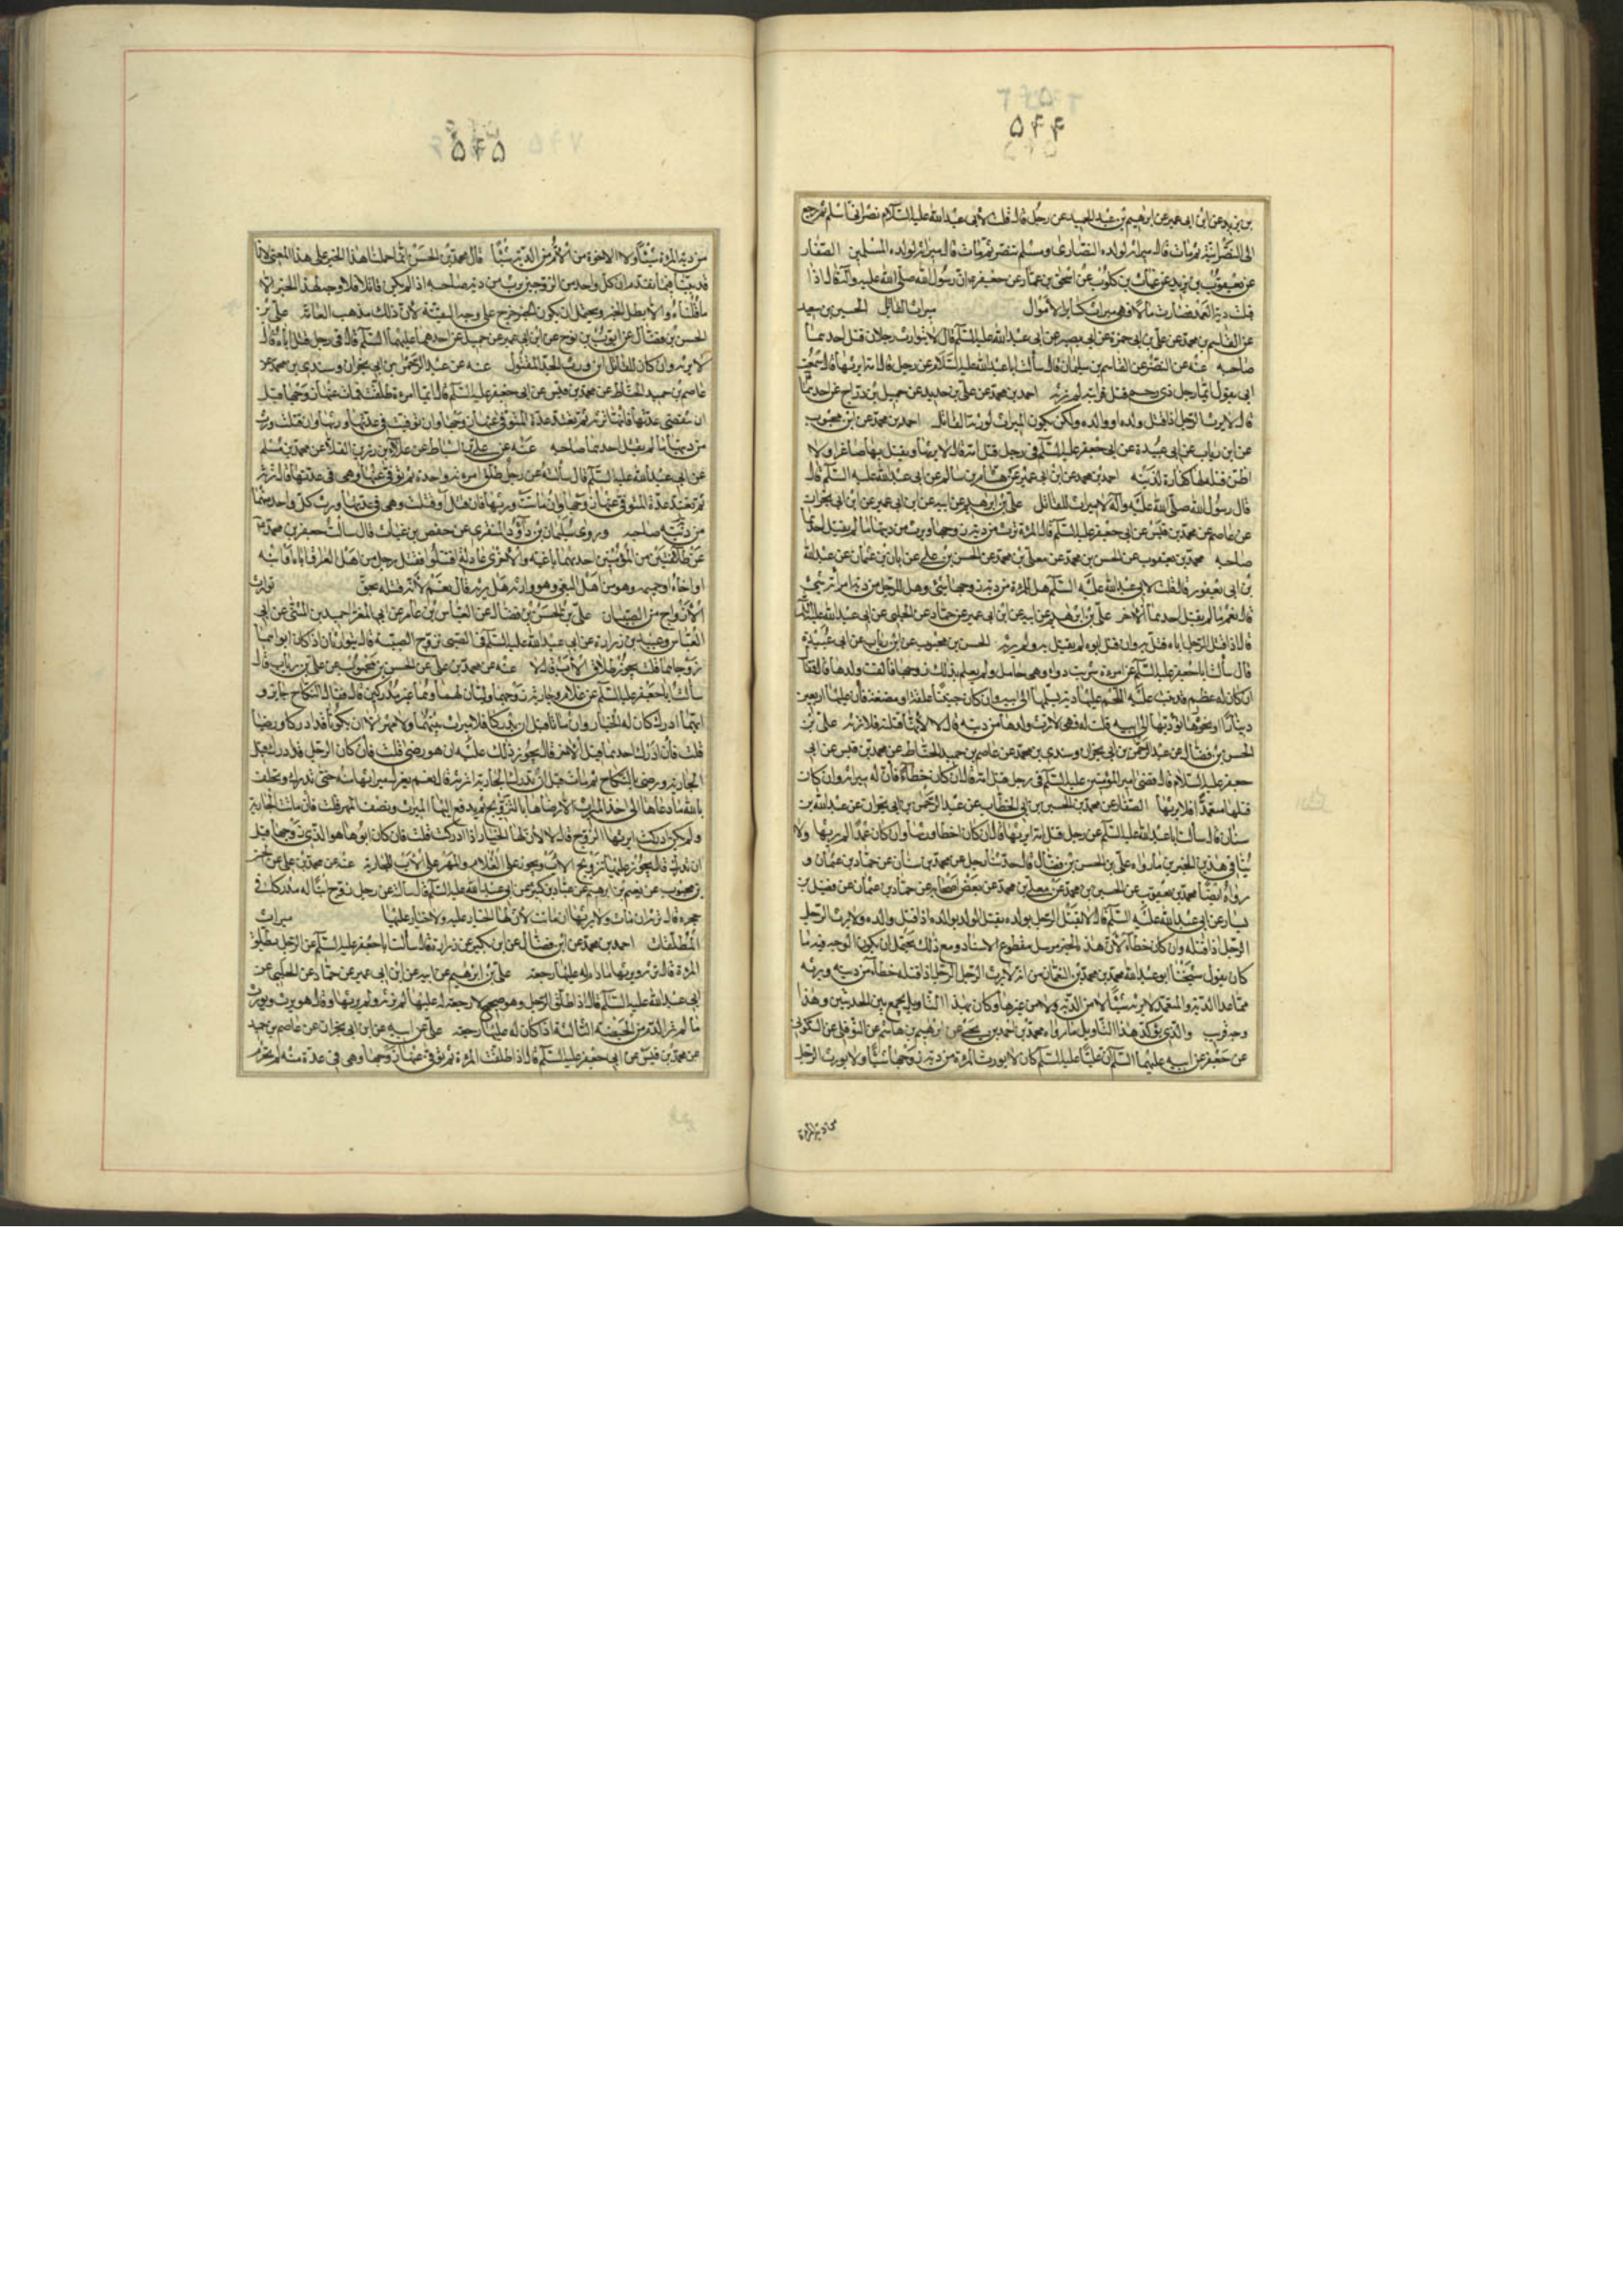 ۵۴۴
بن يزيد عن ابن ابى عمير عن ابراهيم بن عبد الحميد عن رجل قال قلت لابى عبد الله عليه السلام نصرانى اسلم ثم رجع
الى النصرانية ثم مات قال ميراثه لولده النصارى ومسلم تنصر ثم مات قال ميراثه لولده المسلمين الصفار
عن يعقوب بن يزيد عن غياث بن كلوب عن اسحق بن عمار عن جعفر ان رسول الله صلى الله عليه وآله قال اذا
قبلت دية العمد فصارت مالا فهى ميراث كساير الاموال ميراث القاتل الحسين بن سعيد
عن القاسم بن محمد عن على بن ابى حمزة عن ابى بصير عن ابى عبد الله عليه السلم قال لا يتوارث رجلان قتل احدهما
صاحبه عنه عن النضر عن القاسم بن سليمان قال سألت ابا عبد الله عليه السلام عن رجل قتل امه ايرثها قال سمعت
ابى يقول ايما رجل ذى رحم قتل قرابته لم يرثه احمد بن محمد عن على بن حديد عن جميل بن دراج عن احدهما
قال لا يرث الرجل اذا قتل ولده او والده ولكن يكون الميراث لورثة القاتل احمد بن محمد عن ابن محبوب
عن ابن رياب عن ابى عبيدة عن ابى جعفر عليه السلم فى رجل قتل امه قال لا يرثها ويقتل بها صاغرا ولا
اظن قتله بها كفارة لذنبه احمد بن محمد عن ابن ابى عمير عن هشام بن سالم عن ابى عبد الله عليه السلم قال
قال رسول الله صلى الله عليه وآله لا ميراث للقاتل على بن ابراهيم عن ابيه عن ابن ابى عمير عن ابن ابى نجران
عن عاصم عن محمد بن قيس عن ابى جعفر عليه السلم قال المرأة ترث من دية زوجها ويرث من ديتها ما لم يقتل احدهما
صاحبه محمد بن يعقوب عن الحسين بن محمد عن معلى بن محمد عن الحسن بن على عن ابان بن عثمان عن عبد الله
بن ابى يعفور قال قلت لابى عبد الله عليه السلم هل للمرأة من دية زوجها شىء وهل للرجل من دية امرأته شىء
قال نعم ما لم يقتل احدهما الاخر على بن ابراهيم عن ابيه عن ابن ابى عمير عن حماد عن الحلبى عن ابى عبد الله عليه السلم
قال اذا قتل الرجل اباه قتل به وان قتله ابوه لم يقتل به ولم يرثه الحسن بن محبوب عن ابن رياب عن ابى عبيدة
قال سألت ابا جعفر عليه السلم عن امرأة شربت دواء وهى حامل ولم يعلم بذلك زوجها فالقت ولدها فقال
ان كان له عظم قد نبت عليه اللحم عليها دية تسلمها الى ابيه وان كان جنينا علقة او مضغة فان عليها اربعين
دينارا او غرة تؤديها الى ابيه قلت له فهى لا ترث ولدها من ديته قال لا لانها قتلته فلا ترثه على بن
الحسن بن فضال عن عبد الرحمن بن ابى نجران وسندى بن محمد عن عاصم بن حميد الحناط عن محمد بن قيس عن ابى
جعفر عليه السلام قال قضى امير المؤمنين عليه السلم فى رجل قتل امه قال ان كان خطأ فان له ميراثه وان كان
قتلها متعمدا فلا يرثها الصفار عن محمد بن الحسين بن ابى الخطاب عن عبد الرحمن بن ابى نجران عن عبد الله بن
سنان قال سألت ابا عبد الله عليه السلم عن رجل قتل امه ايرثها قال ان كان خطأ ورثها وان كان عمدا لم يرثها ولا
ينافى هذين الخبرين ما رواه على بن الحسن بن فضال قال حدثنا رجل عن محمد بن سنان عن حماد بن عثمان و
رواه ايضا محمد بن يعقوب عن الحسين بن محمد عن معلى بن محمد عن بعض اصحابه عن حماد بن عثمان عن فضيل بن
يسار عن ابى عبد الله عليه السلم قال لا يقتل الرجل بولده ويقتل الولد بوالده اذا قتل والده ولا يرث الرجل
الرجل اذا قتله وان كان خطأ لان هذا الخبر مرسل مقطوع الاسناد ومع ذلك يحتمل ان يكون الوجه فيه ما
كان يقول شيخنا ابو عبد الله محمد بن محمد بن النعمان من انه لا يرث الرجل الرجل اذا قتله خطأ من ديته ويرثه
مما عدا الدية والمتعمد لا يرثه شيئا لا من الدية ولا من غيرها وكان بهذا التأويل يجمع بين الحديثين وهذا
وجه قريب والذى يؤكد هذا التأويل ما رواه محمد بن احمد بن يحيى عن ابراهيم بن هاشم عن النوفلى عن السكونى
عن جعفر عن ابيه عليهما السلم ان عليا عليه السلم كان لا يورث المرأة من دية زوجها شيئا ولا يورث الرجل
۵۴۵
من دية المرأة شيئا ولا الاخوة من الام من الدية شيئا قال محمد بن الحسن انما حملنا هذا الخبر على هذا المعنى لانا
قد بينا فيما تقدم ان كل واحد من الزوجين يرث من دية صاحبه اذا لم يكن قاتلا فلا وجه لهذا الخبر الا
ما قلناه والا بطل الخبر ويحتمل ان يكون الخبر خرج على وجه التقية لان ذلك مذهب العامة على بن
الحسن بن فضال عن ايوب بن نوح عن ابن ابى عمير عن جميل عن احدهما عليهما السلم قال فى رجل قتل اباه قال
لا يرثه وان كان للقاتل ابن ورث الجد المقتول عنه عن عبد الرحمن بن ابى نجران وسندى بن محمد عن
عاصم بن حميد الحناط عن محمد بن قيس عن ابى جعفر عليه السلم قال ايما امرأة طلقت فمات عنها زوجها قبل
ان تنقضى عدتها فانها ترثه ثم تعتد عدة المتوفى عنها زوجها وان توفيت فى عدتها ورثها وان قتلت ورث
من ديتها ما لم يقتل احدهما صاحبه عنه عن على بن اسباط عن علاء بن رزين القلا عن محمد بن مسلم
عن ابى عبد الله عليه السلم قال سألته عن رجل طلق امرأته واحدة ثم توفى عنها وهى فى عدتها قال ترثه
ثم تعتد عدة المتوفى عنها زوجها وان ماتت ورثها فان قتل او قتلت وهى فى عدتها ورث كل واحد منهما
من دية صاحبه وروى سليمان بن داود المنقرى عن حفص بن غياث قال سألت جعفر بن محمد
عن طائفتين من المؤمنين احديهما باغية والاخرى عادلة اقتتلوا فقتل رجل من اهل العراق اباه او ابنه
او اخاه او حميمه وهو من اهل البغى وهو وارثه هل يرثه قال نعم لانه قتله بحق توارث
الازواج من الصبيان على بن الحسن بن فضال عن العباس بن عامر عن ابى المغرا حميد بن المثنى عن ابى
العباس وعبيد بن زرارة عن ابى عبد الله عليه السلم فى الصبى يزوج الصبية قال يتوارثان اذا كان ابواهما
زوجاهما قلت يجوز طلاق الاب قال لا عنه عن محمد بن على عن الحسن بن محبوب عن على بن رياب قال
سألت ابا جعفر عليه السلم عن غلام وجارية زوجهما وليان لهما وهما غير مدركين قال فقال النكاح جايز و
ايهما ادرك كان له الخيار وان ماتا قبل ان يدركا فلا ميراث بينهما ولا مهر الا ان يكونا قد ادركا ورضيا
قلت فان ادرك احدهما قبل الاخر قال يجوز ذلك عليه ان هو رضى قلت فان كان الرجل قد ادرك قبل
الجارية ورضى بالنكاح ثم مات قبل ان تدرك الجارية اترثه قال نعم يعزل ميراثها منه حتى تدرك وتحلف
بالله ما دعاها الى اخذ الميراث الا رضاها بالتزويج ثم يدفع اليها الميراث ونصف المهر قلت فان ماتت الجارية
ولم يكن ادركت ايرثها الزوج قال لا لان لها الخيار اذا ادركت قلت فان كان ابوها هو الذى زوجها قبل
ان تدرك قال يجوز عليها تزويج الاب ويجوز على الغلام والمهر على الاب للجارية عنه عن محمد بن على عن الحسن
بن محبوب عن نعيم بن ابراهيم عن عباد بن كثير عن ابى عبد الله عليه السلم قال سألته عن رجل زوج ابنا له مدركا فى
حجره قال ترثه ان مات ولا يرثها ان ماتت لان لها الخيار عليه ولا خيار عليها ميراث
المطلقات احمد بن محمد عن ابن فضال عن ابن بكير عن زرارة قال سألت ابا جعفر عليه السلم عن الرجل يطلق
المرأة قال ترثه ويرثها ما دام له عليها رجعة على بن ابراهيم عن ابيه عن ابن ابى عمير عن حماد عن الحلبى عن
ابى عبد الله عليه السلم قال اذا طلق الرجل وهو صحيح لا رجعة له عليها لم ترثه ولم يرثها وقال هو يرث ويورث
ما لم تر الدم من الحيضة الثالثة اذا كان له عليها رجعة على عن ابيه عن ابن ابى نجران عن عاصم بن حميد
عن محمد بن قيس عن ابى جعفر عليه السلم قال اذا طلقت المرأة ثم توفى عنها زوجها وهى فى عدة منه لم تحرم